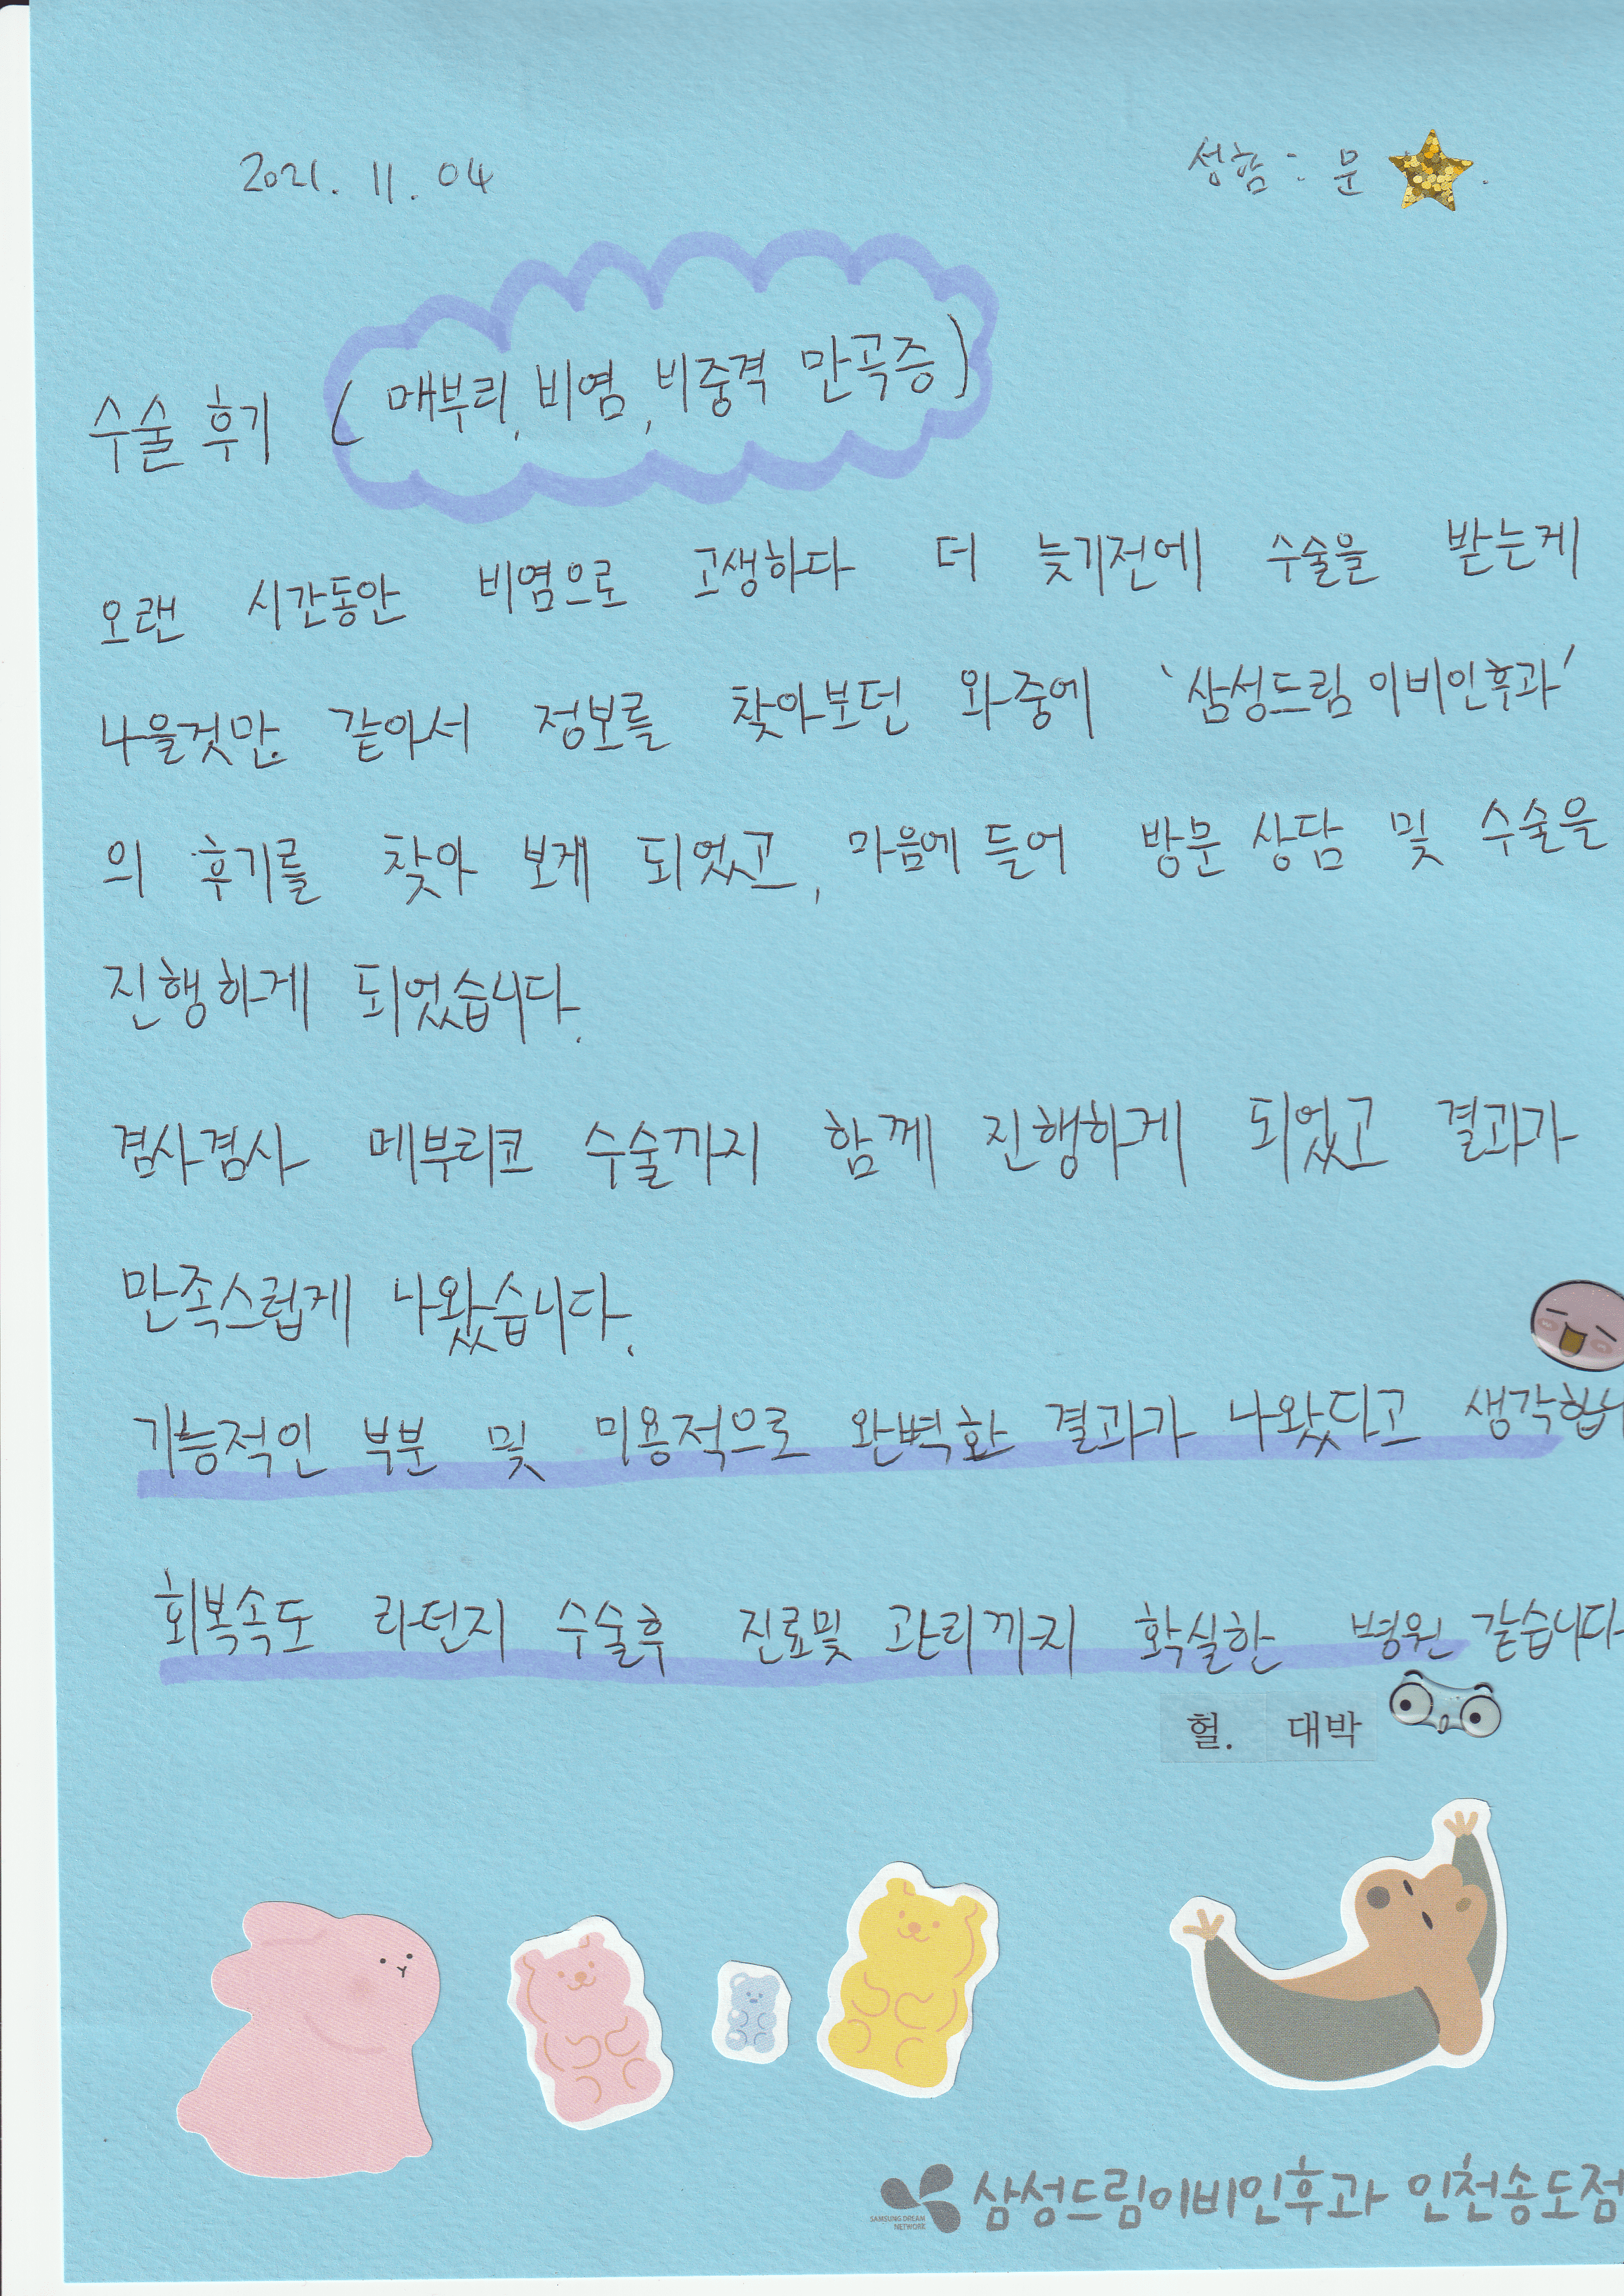 2021. 11. 04 성함 : 문 .
수술 후기 ( 매부리, 비염, 비중격 만곡증 )
오랜 시간동안 비염으로 고생하다 더 늦기전에 수술을 받는게
나을것만 같아서 정보를 찾아보던 와중에 '삼성드림 이비인후과'
의 후기를 찾아 보게 되었고, 마음에 들어 방문 상담 및 수술을
진행하게 되었습니다.
겸사겸사 메부리코 수술까지 함께 진행하게 되었고 결과가
만족스럽게 나왔습니다.
기능적인 부분 및 미용적으로 완벽한 결과가 나왔다고 생각합니
회복속도 라던지 수술후 진료및 관리까지 확실한 병원 같습니다
헐. 대박
삼성드림이비인후과 인천송도점
SAMSUNG DREAM
NETWORK